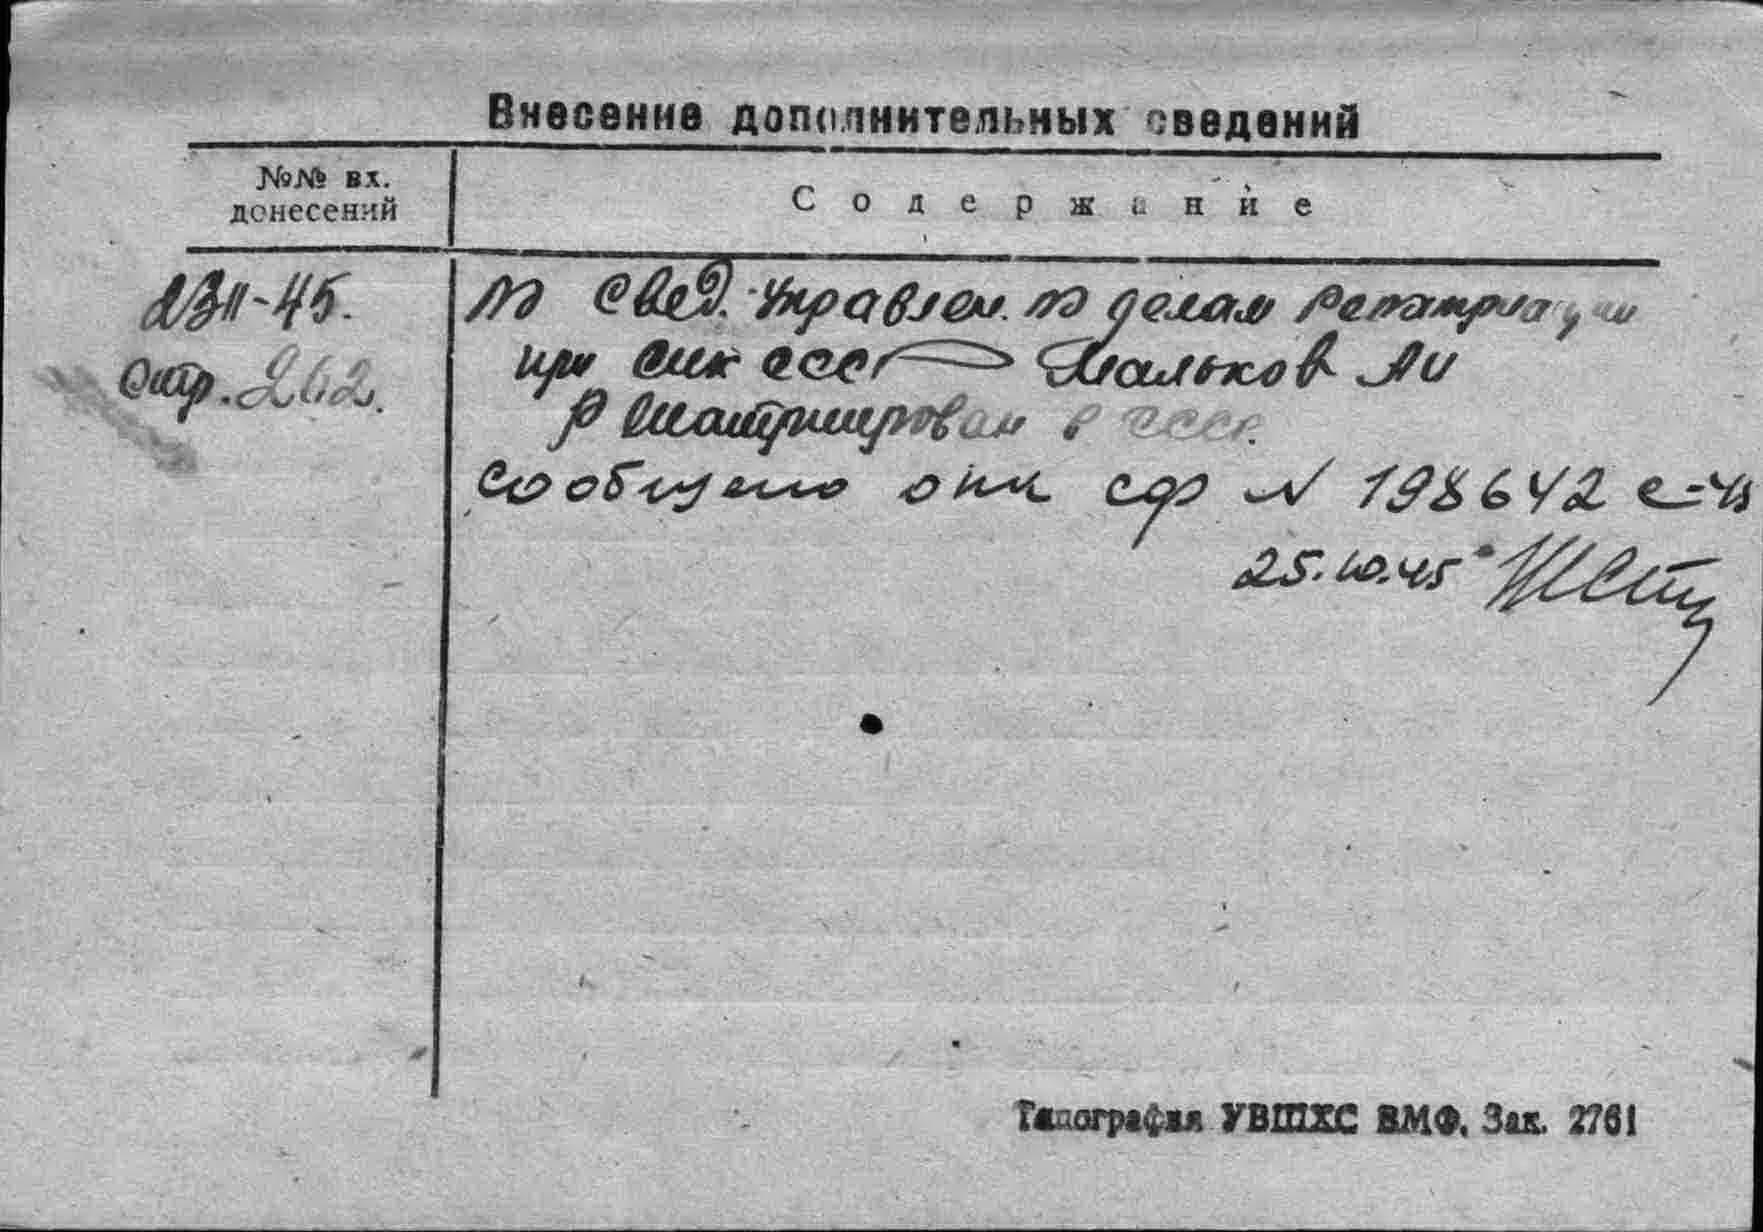 Внесение дополнительных сведений
№№ вх.
донесений
Содержание
23п-45.
стр. 262.
по свед. Управлен. по делам репатриации
при СНК СССР Мальков АИ
Репатриирован в СССР.
Сообщено СФ N 198642 с-45
25.10.45
Типография УВШХС ВМФ. Зак. 2761